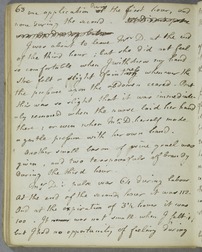 63 one application the first hour, and
one during the second.
I was about to leave Mrs D. at the end
of the third hour; but she did not feel
so comfortable when I withdrew my hand
she felt a slight faintness whenever the
the pressure upon the abdomen ceased. But
this was so slight that it was immediate-
ly removed when the nurse laid her hand
there; or even when Mrs D. herself made
a gentle pressure with her own hand.
Another small bason of prune gruel was
given, and two teaspoonfuls of brandy
during the third hour.
Mrs D's pulse was 60 during labour
at the end of the second hour it was 112.
and at the expiration of 3½ hours it was
100. It was not small when I felt it,
but I had no opportunity of feeling during